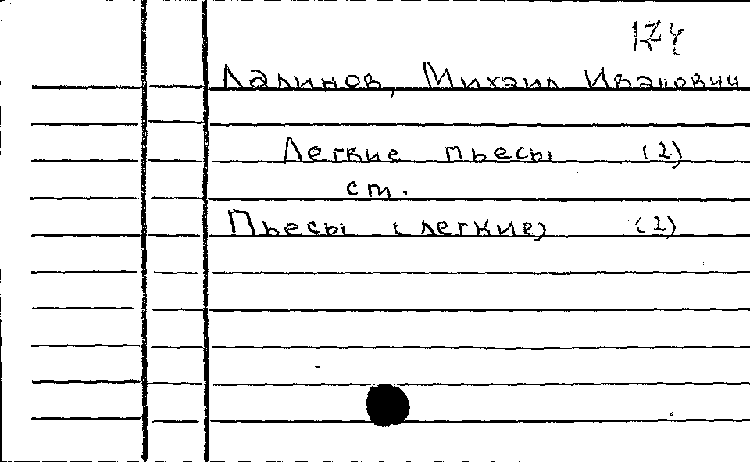 174
Лалинов, Михаил Иванович
Легкие пьесы (2)
ст.
Пьесы (легкие) (2)